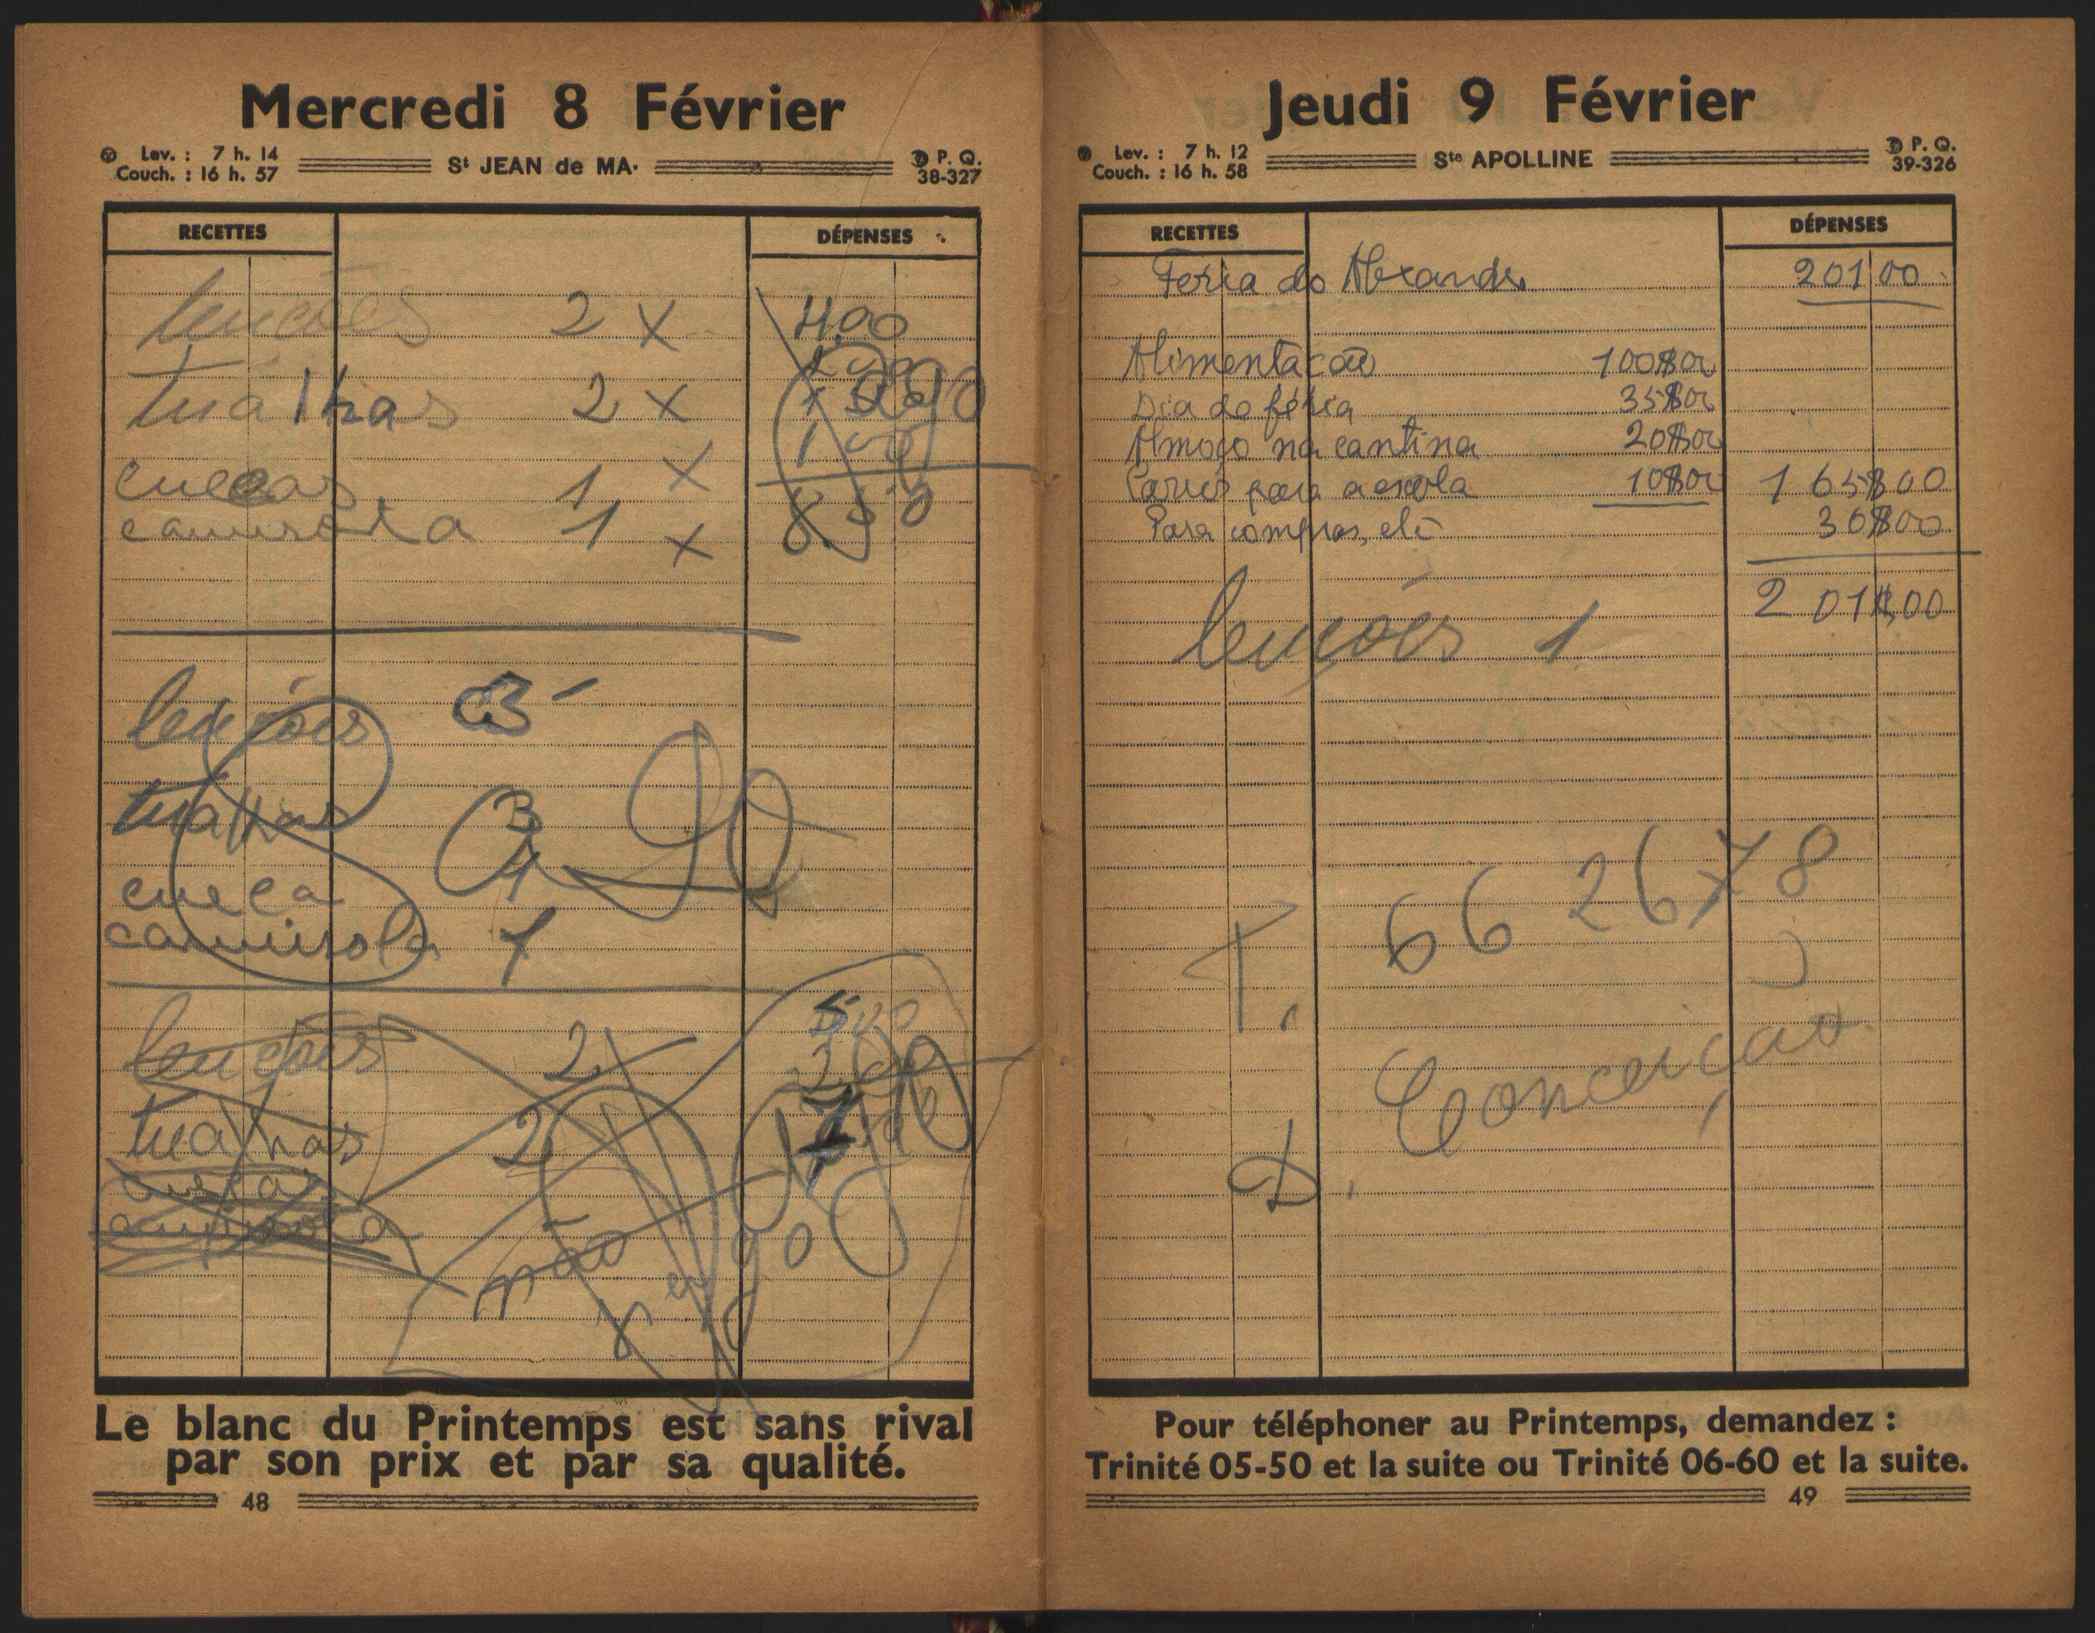 Mercredi 8 Février
Lev. : 7 h. 14
Couch. : 16 h. 57
St JEAN de MA.
P. Q.
38-327
RECETTES
DÉPENSES
lençóes 2 x 4,00
tualhas 2 x
cuecas 1 x
camisola 1 x
lençóes 3
tualhas 3
cueca 1
camisola 1
lençóes 2
tualhas 2
cueca
camisola
não
Le blanc du Printemps est sans rival
par son prix et par sa qualité.
48
Jeudi 9 Février
Lev. : 7 h. 12
Couch. : 16 h. 58
Ste APOLLINE
P. Q.
39-326
RECETTES
DÉPENSES
Feria do Alexandre 201 00
Alimentação 100$00
Dia do féria 35$00
Almoço na cantina 20$00
Carros para a escola 10$00 165$00
Para compras, etc 36$00
201$00
lençóes 1
T. 66 26 78
D. Conceição
Pour téléphoner au Printemps, demandez :
Trinité 05-50 et la suite ou Trinité 06-60 et la suite.
49